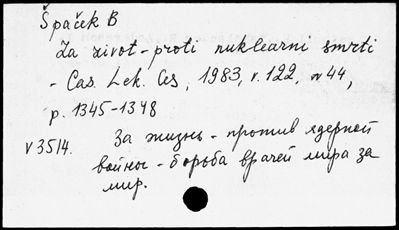 Špaček B
Za zivot - proti nuklearni smrti
- Cas. Lek. Ces, 1983, v. 122, N 44,
p. 1345-1348
V3514. За жизнь - против ядерной
войны - борьба врачей мира за
мир.